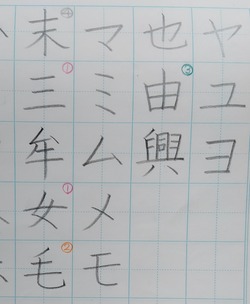 末 マ 也 ヤ
① ③
三 ミ 由 ユ
牟 ム 興 ヨ
①
女 メ
②
毛 モ